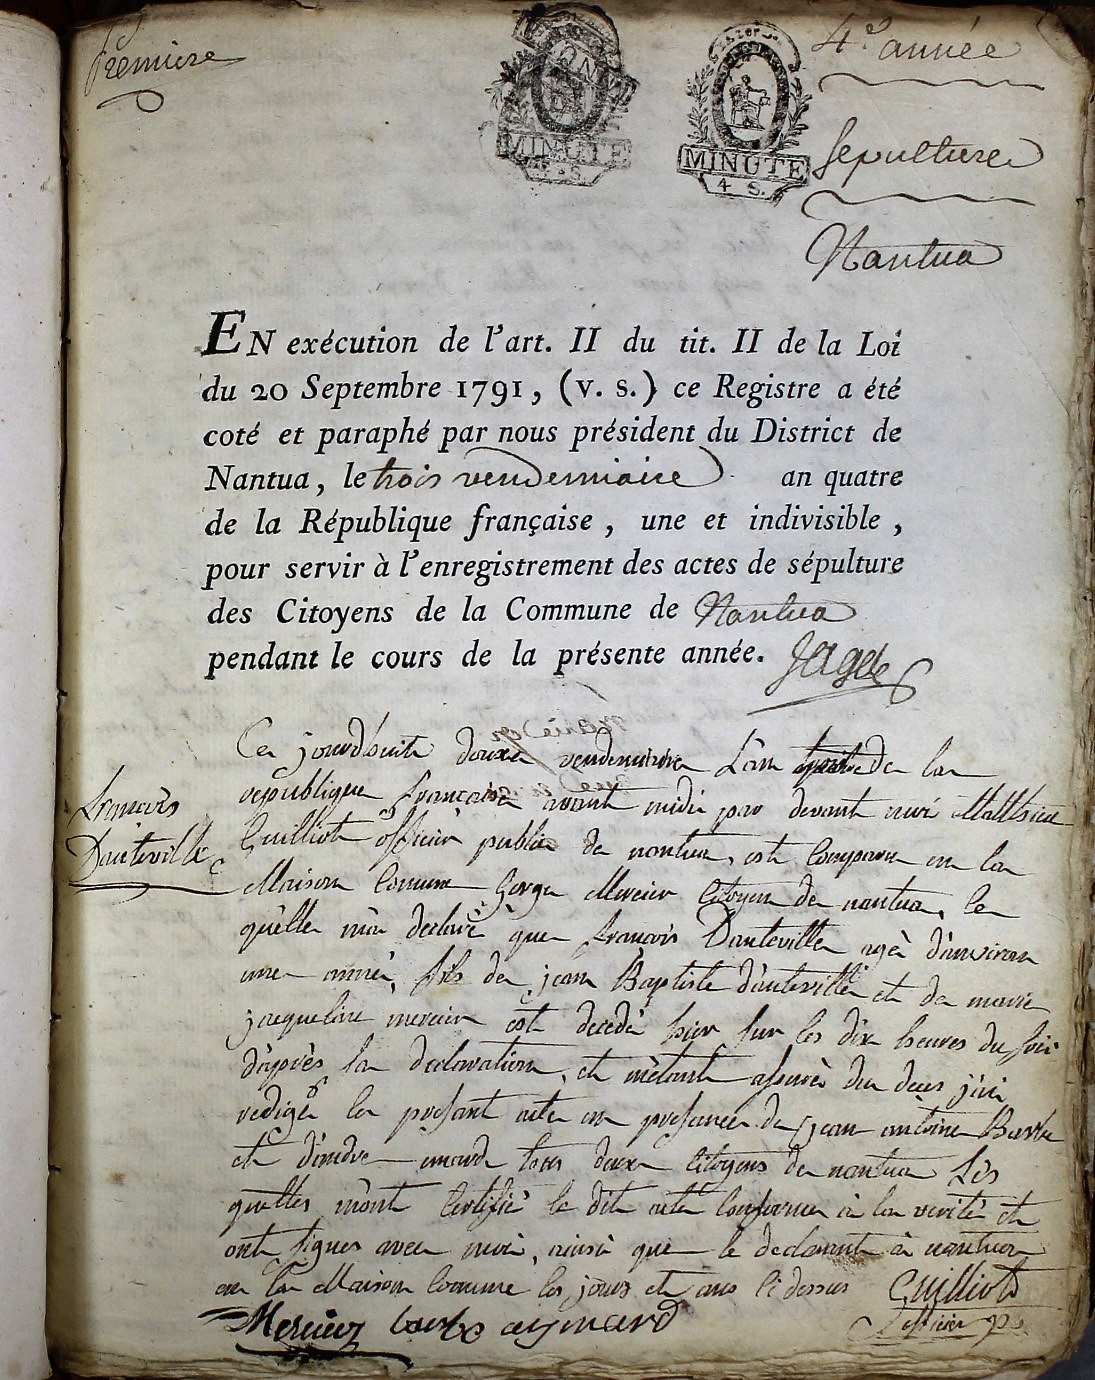 Premiere
4e année
MINUTE
4 S.
MINUTE
4 S.
Sepulture
Nantua
EN exécution de l'art. II du tit. II de la Loi
du 20 Septembre 1791, (v. s.) ce Registre a été
coté et paraphé par nous président du District de
Nantua, le trois vendemiaire an quatre
de la République française, une et indivisible,
pour servir à l'enregistrement des actes de sépulture
des Citoyens de la Commune de Nantua
pendant le cours de la présente année.
Ce jourdhuit douze vendemiaire L'an quatre de la
republique francaise avant midi par devant moi Matthieu
françois
Dauteville
Guilliot officier public de nantua, est comparu en la
Maison Comune George Mercier Citoyen de nantua, le
quelle m'a declaré que françois Dauteville agé d'environ
une année, fils de jean Baptiste d'auteville et de marie
jacqueline mercier est decedé hier sur les dix heures du soir
d'après sa declaration, et m'etant assuré du deces j'ai
redigé le present acte en presance de jean antoine Barbe
et d'andre emard tous deux Citoyens de nantua Les
quelles m'ont Certifié le dit acte Conforme à la verité et
ont signes avec moi, ainsi que le declarant à nantua
en la Maison Comune les jours et ans ci dessus Guilliot
Mercier barbe aymard officier p.